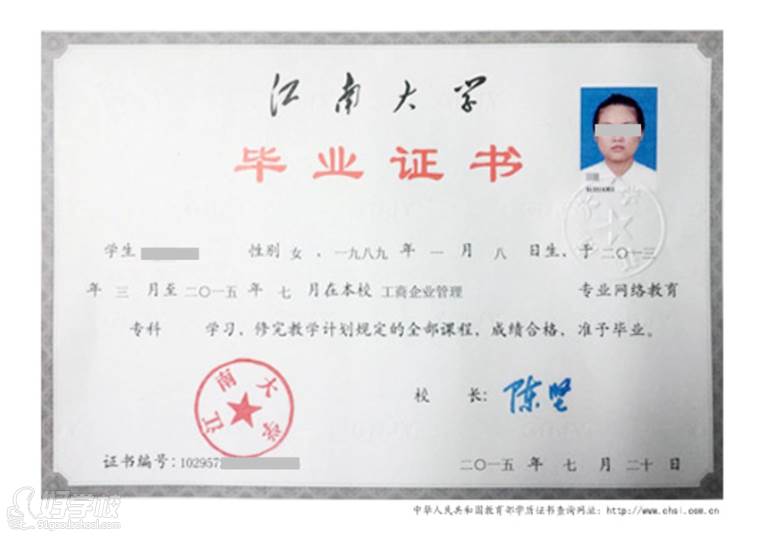 江南大学
毕业证书
学生 性别 女 ，一九八九 年 一 月 八 日生，于 二〇一三
年 三 月至 二〇一五 年 七 月在本校 工商企业管理 专业网络教育
专科 学习，修完教学计划规定的全部课程，成绩合格，准予毕业。
江南大学
校 长： 陈坚
证书编号：102957
二〇一五 年 七 月 二十 日
中华人民共和国教育部学历证书查询网址：http://www.chsi.com.cn
好学校
91goodschool.com